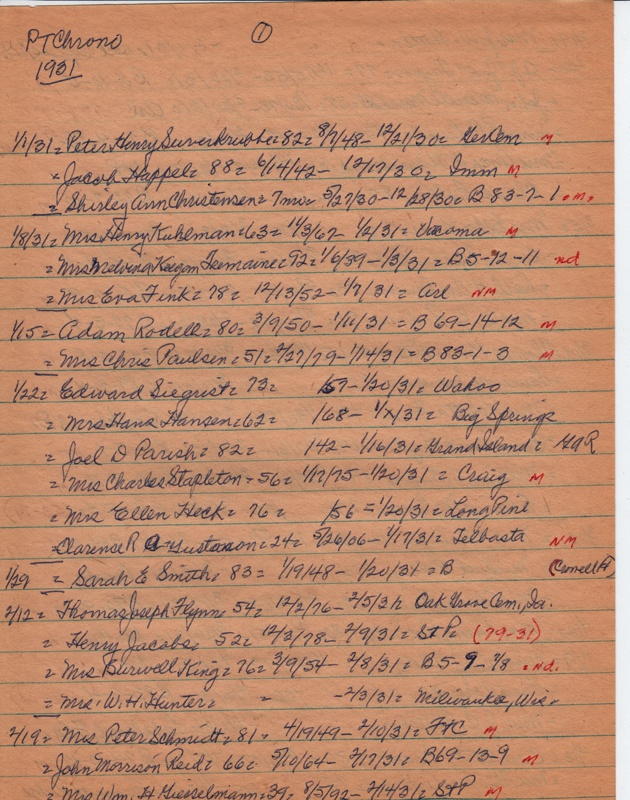 PTChrono ①
1931
1/1/31 = Peter Henry Suverkrubbe = 82 = 8/7/48 - 12/21/30 = GerCem M
= Jacob Happel = 88 = 6/14/42 - 12/17/30 = Imm M
= Shirley Ann Christensen = 7mo = 5/27/30 - 12/28/30 = B 83-7-1 M
1/8/31 = Mrs Henry Kuhlman = 63 = 11/3/67 - 1/2/31 = Vacoma M
= Mrs Melvina Keegan Tremaine = 92 = 1/6/39 - 1/3/31 = B5-12-11 nd
= Mrs Eva Fink = 78 = 12/13/52 - 1/7/31 = Arl NM
1/15 = Adam Rodell = 80 = 3/9/50 - 1/11/31 = B 69-14-12 M
= Mrs Chris Paulsen = 51 = 2/27/79 - 1/14/31 = B 83-1-3 M
1/22 = Edward Siegrist = 73 = /57 - 1/20/31 = Wahoo
= Mrs Hans Hansen = 62 = /68 - 1/X/31 = Big Springs
= Joel D Parish = 82 = /42 - 1/16/31 = Grand Island = GAR
= Mrs Charles Stapleton = 56 = 1/17/75 - 1/20/31 = Craig M
= Mrs Ellen Heck = 76 = /56 = 1/20/31 = Long Pine
= Clarence R Gustason = 24 = 5/26/06 - 1/17/31 = Telbasta NM
1/29 = Sarah E Smith = 83 = 1/19/48 - 1/20/31 = B
2/12 = Thomas Joseph Flynn = 54 = 12/2/76 - 2/5/31 Oak Grove Cem, Ia.
= Henry Jacobs = 52 = 12/3/78 - 2/9/31 = St P = (79-31)
= Mrs Burwell King = 76 = 3/9/54 - 2/8/31 = B 5-9-7/8 = nd.
= Mrs. W. H. Hunter = = -2/3/31 = Milwaukee, Wis.
2/19 = Mrs Peter Schmidt = 81 = 4/19/49 - 2/10/31 = FtC M
= John Morrison Reid = 66 = 5/10/64 - 2/17/31 = B69-13-9 M
= Mrs Wm. H Giesselmann = 39 = 8/5/92 - 2/14/31 = StP M